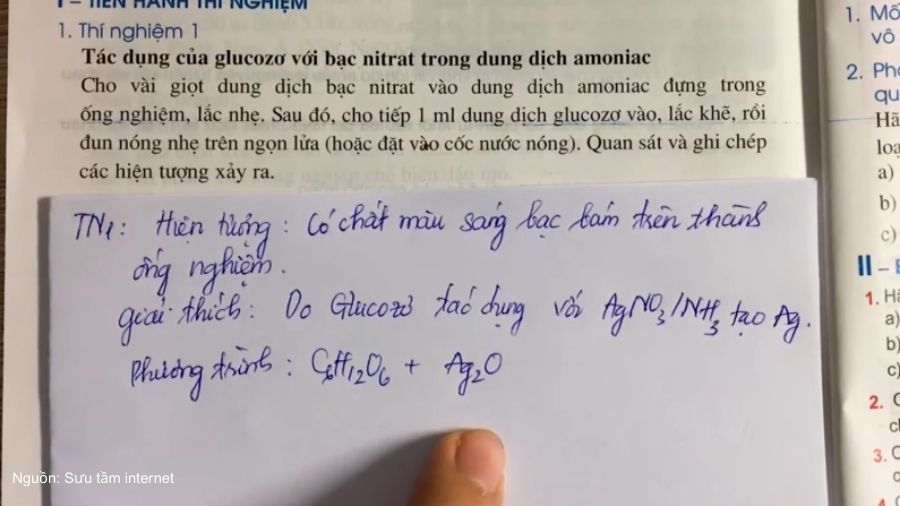 I – TIẾN HÀNH THÍ NGHIỆM
1. Thí nghiệm 1
Tác dụng của glucozơ với bạc nitrat trong dung dịch amoniac
Cho vài giọt dung dịch bạc nitrat vào dung dịch amoniac đựng trong
ống nghiệm, lắc nhẹ. Sau đó, cho tiếp 1 ml dung dịch glucozơ vào, lắc khẽ, rồi
đun nóng nhẹ trên ngọn lửa (hoặc đặt vào cốc nước nóng). Quan sát và ghi chép
các hiện tượng xảy ra.
TN1: Hiện tượng: Có chất màu sáng bạc bám trên thành
ống nghiệm.
giải thích: Do Glucozơ tác dụng với AgNO3/NH3 tạo Ag.
Phương trình: C6H12O6 + Ag2O
Nguồn: Sưu tầm internet
1. Mố
vô
2. Phó
qu
Hã
loạ
a)
b)
c)
II –
1. Hã
a)
b)
c)
2.
3.